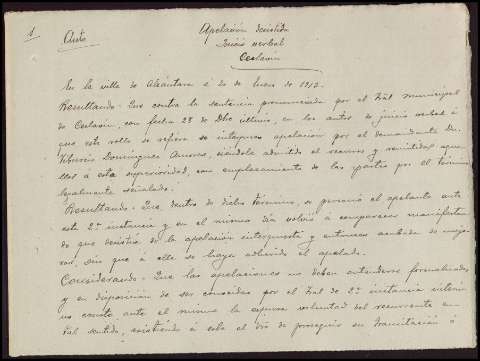 1
Auto
Apelación desistida
Juicio verbal
Ceclavin
En la villa de Alcántara á de Enero de 1912.
Resultando. Que contra la sentencia pronunciada por el Tbal municipal
de Ceclavin, con fecha 23 de Dbre último, en los autos de juicio verbal á
que este rollo se refiere se interpuso apelacion por el demandante Dn
Tiburcio Dominguez siéndole admitido el recurso y remitidos aque
llos á esta superioridad, con emplazamiento de las partes por el término
legalmente señalado.
Resultando. Que, dentro de dicho término, se personó el apelante ante
esta 2ª instancia y en el mismo dia volvió á comparecer manifestan
do que desistia de la apelación interpuesta y entonces acababa de mejo
rar, sin que á ella se haya adherido el apelado.
Considerando. Que las apelaciones no deben entenderse formalizadas
y en disposición de ser conocidas por el Tbal de 2ª instancia interin
no conste ante el mismo la expresa voluntad del recurrente en
tal sentido, asistiendo á este el de proseguir su tramitación ó